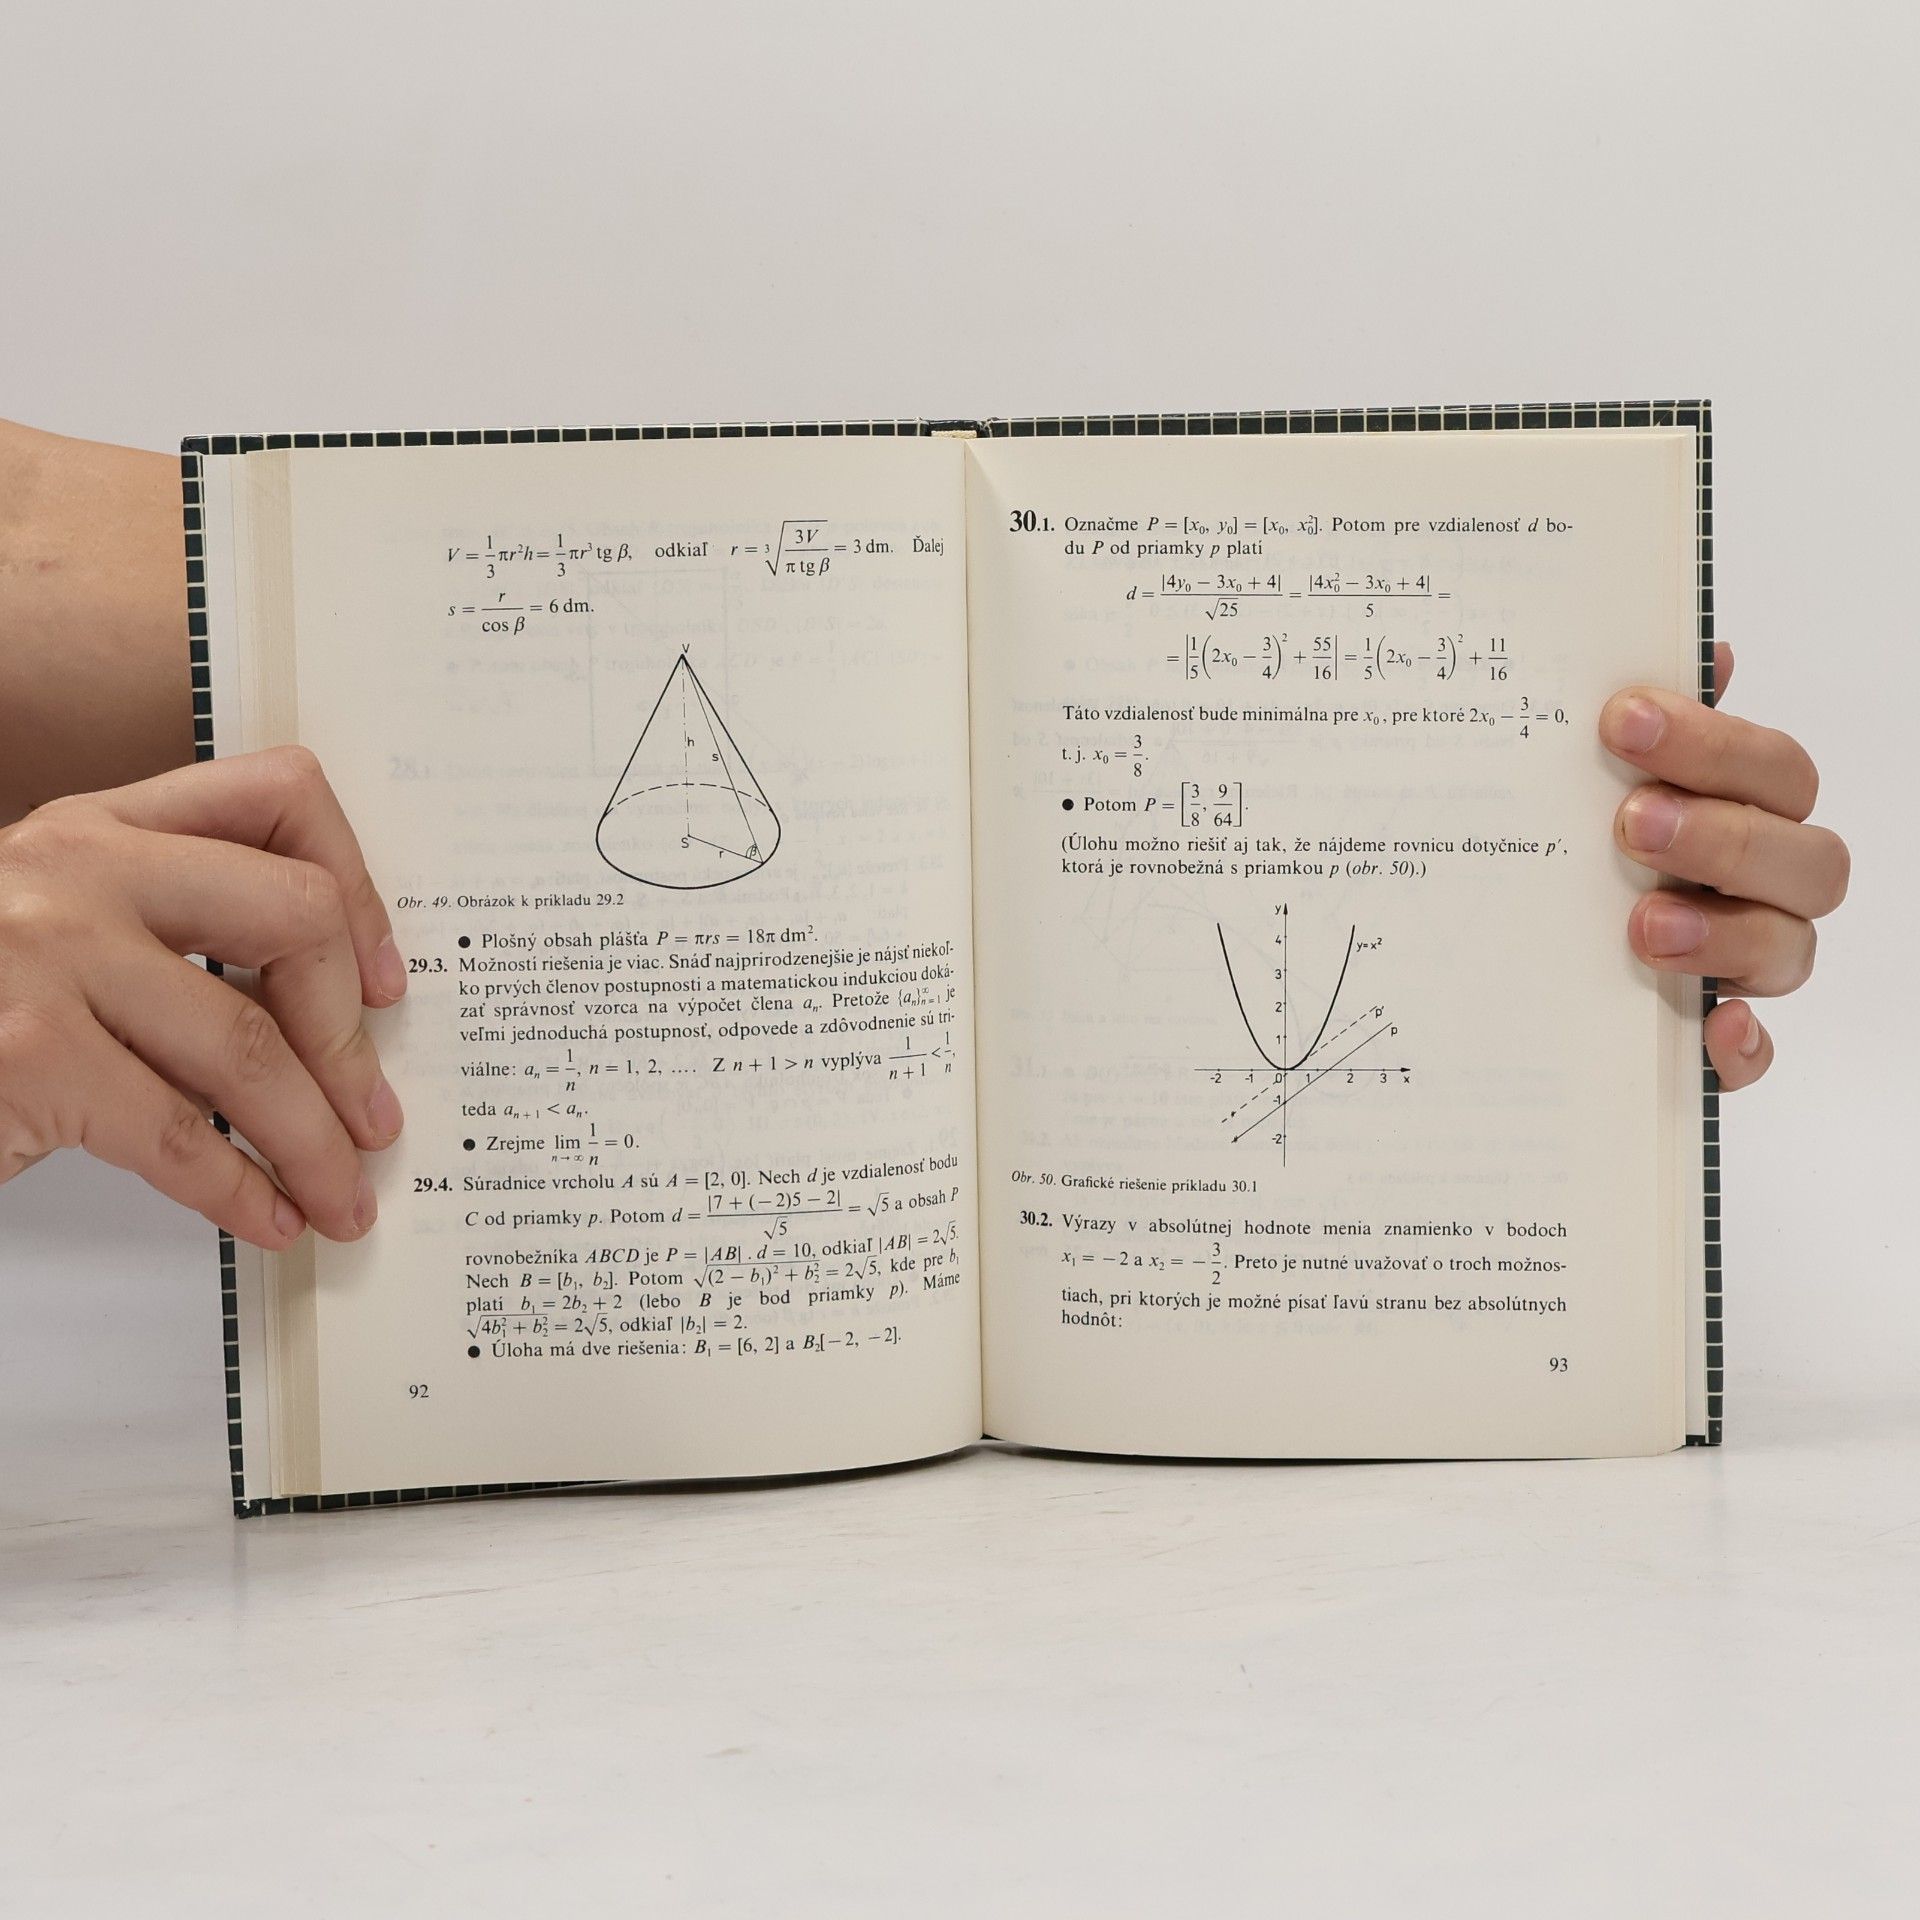 V = 1/3 πr²h = 1/3 πr³ tg β, odkiaľ r = ∛(3V / (π tg β)) = 3 dm. Ďalej
s = r / cos β = 6 dm.
V
h
s
S
r
β
Obr. 49. Obrázok k príkladu 29.2
● Plošný obsah plášťa P = πrs = 18π dm².
29.3. Možností riešenia je viac. Snáď najprirodzenejšie je nájsť niekoľ-
ko prvých členov postupnosti a matematickou indukciou doká-
zať správnosť vzorca na výpočet člena aₙ. Pretože {aₙ}ₙ₌₁^∞ je
veľmi jednoduchá postupnosť, odpovede a zdôvodnenie sú tri-
viálne: aₙ = 1/n, n = 1, 2, .... Z n + 1 > n vyplýva 1/(n + 1) < 1/n,
teda aₙ₊₁ < aₙ.
● Zrejme lim n→∞ 1/n = 0.
29.4. Súradnice vrcholu A sú A = [2, 0]. Nech d je vzdialenosť bodu
C od priamky p. Potom d = |7 + (−2)5 − 2| / √5 = √5 a obsah P
rovnobežníka ABCD je P = |AB| . d = 10, odkiaľ |AB| = 2√5.
Nech B = [b₁, b₂]. Potom √((2 − b₁)² + b₂²) = 2√5, kde pre b₁
platí b₁ = 2b₂ + 2 (lebo B je bod priamky p). Máme
√(4b₁² + b₂²) = 2√5, odkiaľ |b₂| = 2.
● Úloha má dve riešenia: B₁ = [6, 2] a B₂[−2, −2].
92
30.1. Označme P = [x₀, y₀] = [x₀, x₀²]. Potom pre vzdialenosť d bo-
du P od priamky p platí
d = |4y₀ − 3x₀ + 4| / √25 = |4x₀² − 3x₀ + 4| / 5 =
= |1/5 (2x₀ − 3/4)² + 55/16| = 1/5 (2x₀ − 3/4)² + 11/16
Táto vzdialenosť bude minimálna pre x₀, pre ktoré 2x₀ − 3/4 = 0,
t. j. x₀ = 3/8.
● Potom P = [3/8, 9/64].
(Úlohu možno riešiť aj tak, že nájdeme rovnicu dotyčnice p′,
ktorá je rovnobežná s priamkou p (obr. 50).)
y
4
y=x²
3
2
p′
1
p
-2 -1 0 1 2 3 x
-1
-2
Obr. 50. Grafické riešenie príkladu 30.1
30.2. Výrazy v absolútnej hodnote menia znamienko v bodoch
x₁ = −2 a x₂ = −3/2. Preto je nutné uvažovať o troch možnos-
tiach, pri ktorých je možné písať ľavú stranu bez absolútnych
hodnôt:
93